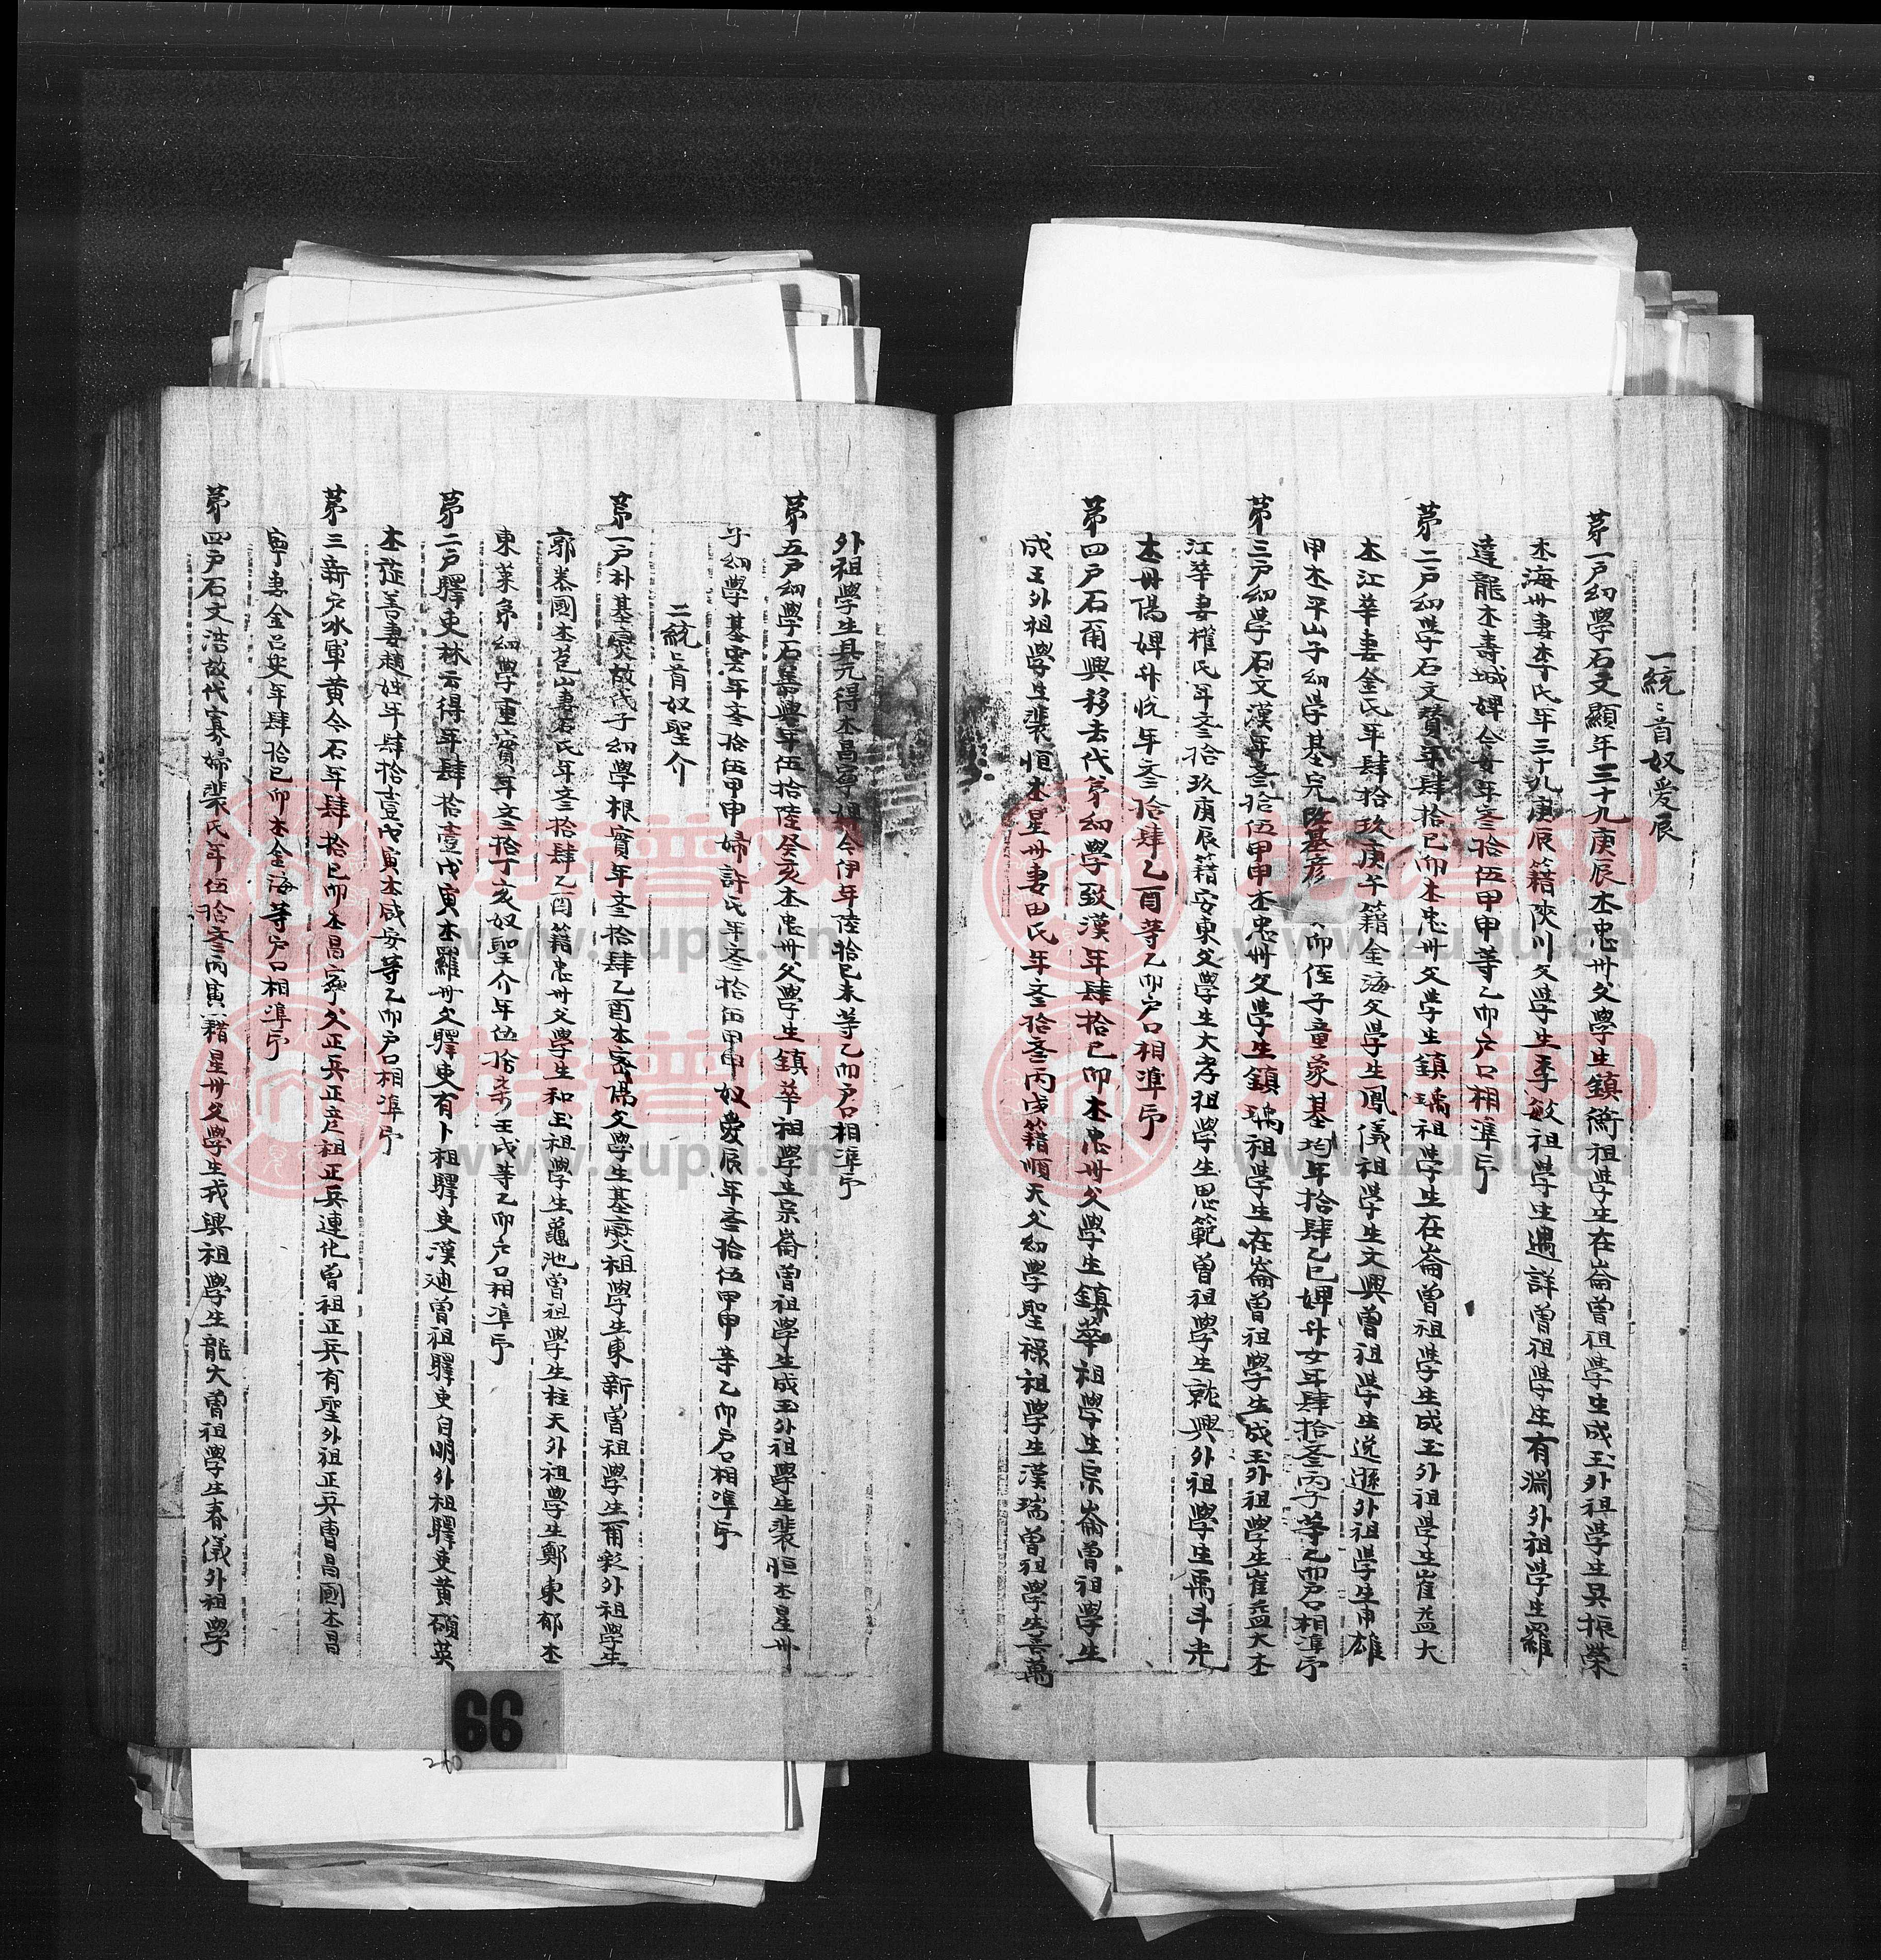 一統ニ首奴愛辰
第一戶幼學石文顯年三十九庚辰本忠州父學生鎮衡祖學生在崙曾祖學生成玉外祖學生吳振榮
本海州妻李氏年三十九庚辰籍陜川父學生季敏祖學生遇詳曾祖學生有淵外祖學生羅
達龍本壽城婢今女年叁拾伍甲申等乙卯戶口相準印
第二戶幼學石文贊年肆拾己卯本忠州父學生鎮瑀祖學生在崙曾祖學生成玉外祖學生崔益大
本江華妻金氏年肆拾玖庚午籍金海父學生鳳儀祖學生文興曾祖學生逸遜外祖學生申雄
甲本平山子幼學基完改基彦 侄子童蒙基均年拾肆乙巳婢廾女年肆拾叁丙子等乙卯戶口相準印
第三戶幼學石文漢年叁拾伍甲申本忠州父學生鎮瑀祖學生在崙曾祖學生成玉外祖學生崔益大本
江華妻權氏年叁拾玖庚辰籍安東父學生大孝祖學生思範曾祖學生就興外祖學生禹斗光
本丹陽婢廾悅年叁拾肆乙酉等乙卯戶口相準印
第四戶石爾興移去代弟幼學致漢年肆拾己卯本忠州父學生鎮華祖學生宗崙曾祖學生
成玉外祖學生裴恒本星州妻田氏年叁拾叁丙戌籍順天父幼學聖祿祖學生漢瑞曾祖學生喜萬
外祖學生具元得本昌寧 令伊年陸拾己未等乙卯戶口相準印
第五戶幼學石 興年伍拾陸癸亥本忠州父學生鎮華祖學生宗崙曾祖學生成玉外祖學生裴恒本星州
子幼學基雲年叁拾伍甲申婦許氏年叁拾伍甲申奴愛辰年叁拾伍甲申等乙卯戶口相準印
二統ニ首奴聖介
第一戶朴基燮故代子幼學根實年叁拾肆乙酉本密陽父學生基燮祖學生東新曾祖學生爾彩外祖學生
郭泰國本苞山妻石氏年叁拾肆乙酉籍忠州父學生和玉祖學生龜池曾祖學生柱天外祖學生鄭東郁本
東萊弟幼學重實年叁拾丁亥奴聖介年伍拾柒壬戌等乙卯戶口相準印
第二戶驛吏林云得年肆拾壹戊寅本羅州父驛吏有卜祖驛吏漢迪曾祖驛吏自明外祖驛吏黃碩英
本 善妻趙姓年肆拾壹戊寅本咸安等乙卯戶口相準印
第三新戶水軍黃今石年肆拾己卯本昌寧父正兵正彦祖正兵連化曾祖正兵有聖外祖正兵曺昌國本昌
寧妻金召史年肆拾己卯本金海等戶口相準印
第四戶石文浩故代寡婦裴氏年伍拾叁丙寅籍星州父學生我興祖學生龍大曾祖學生春儀外祖學
66
260
族譜网
www.zupu.cn